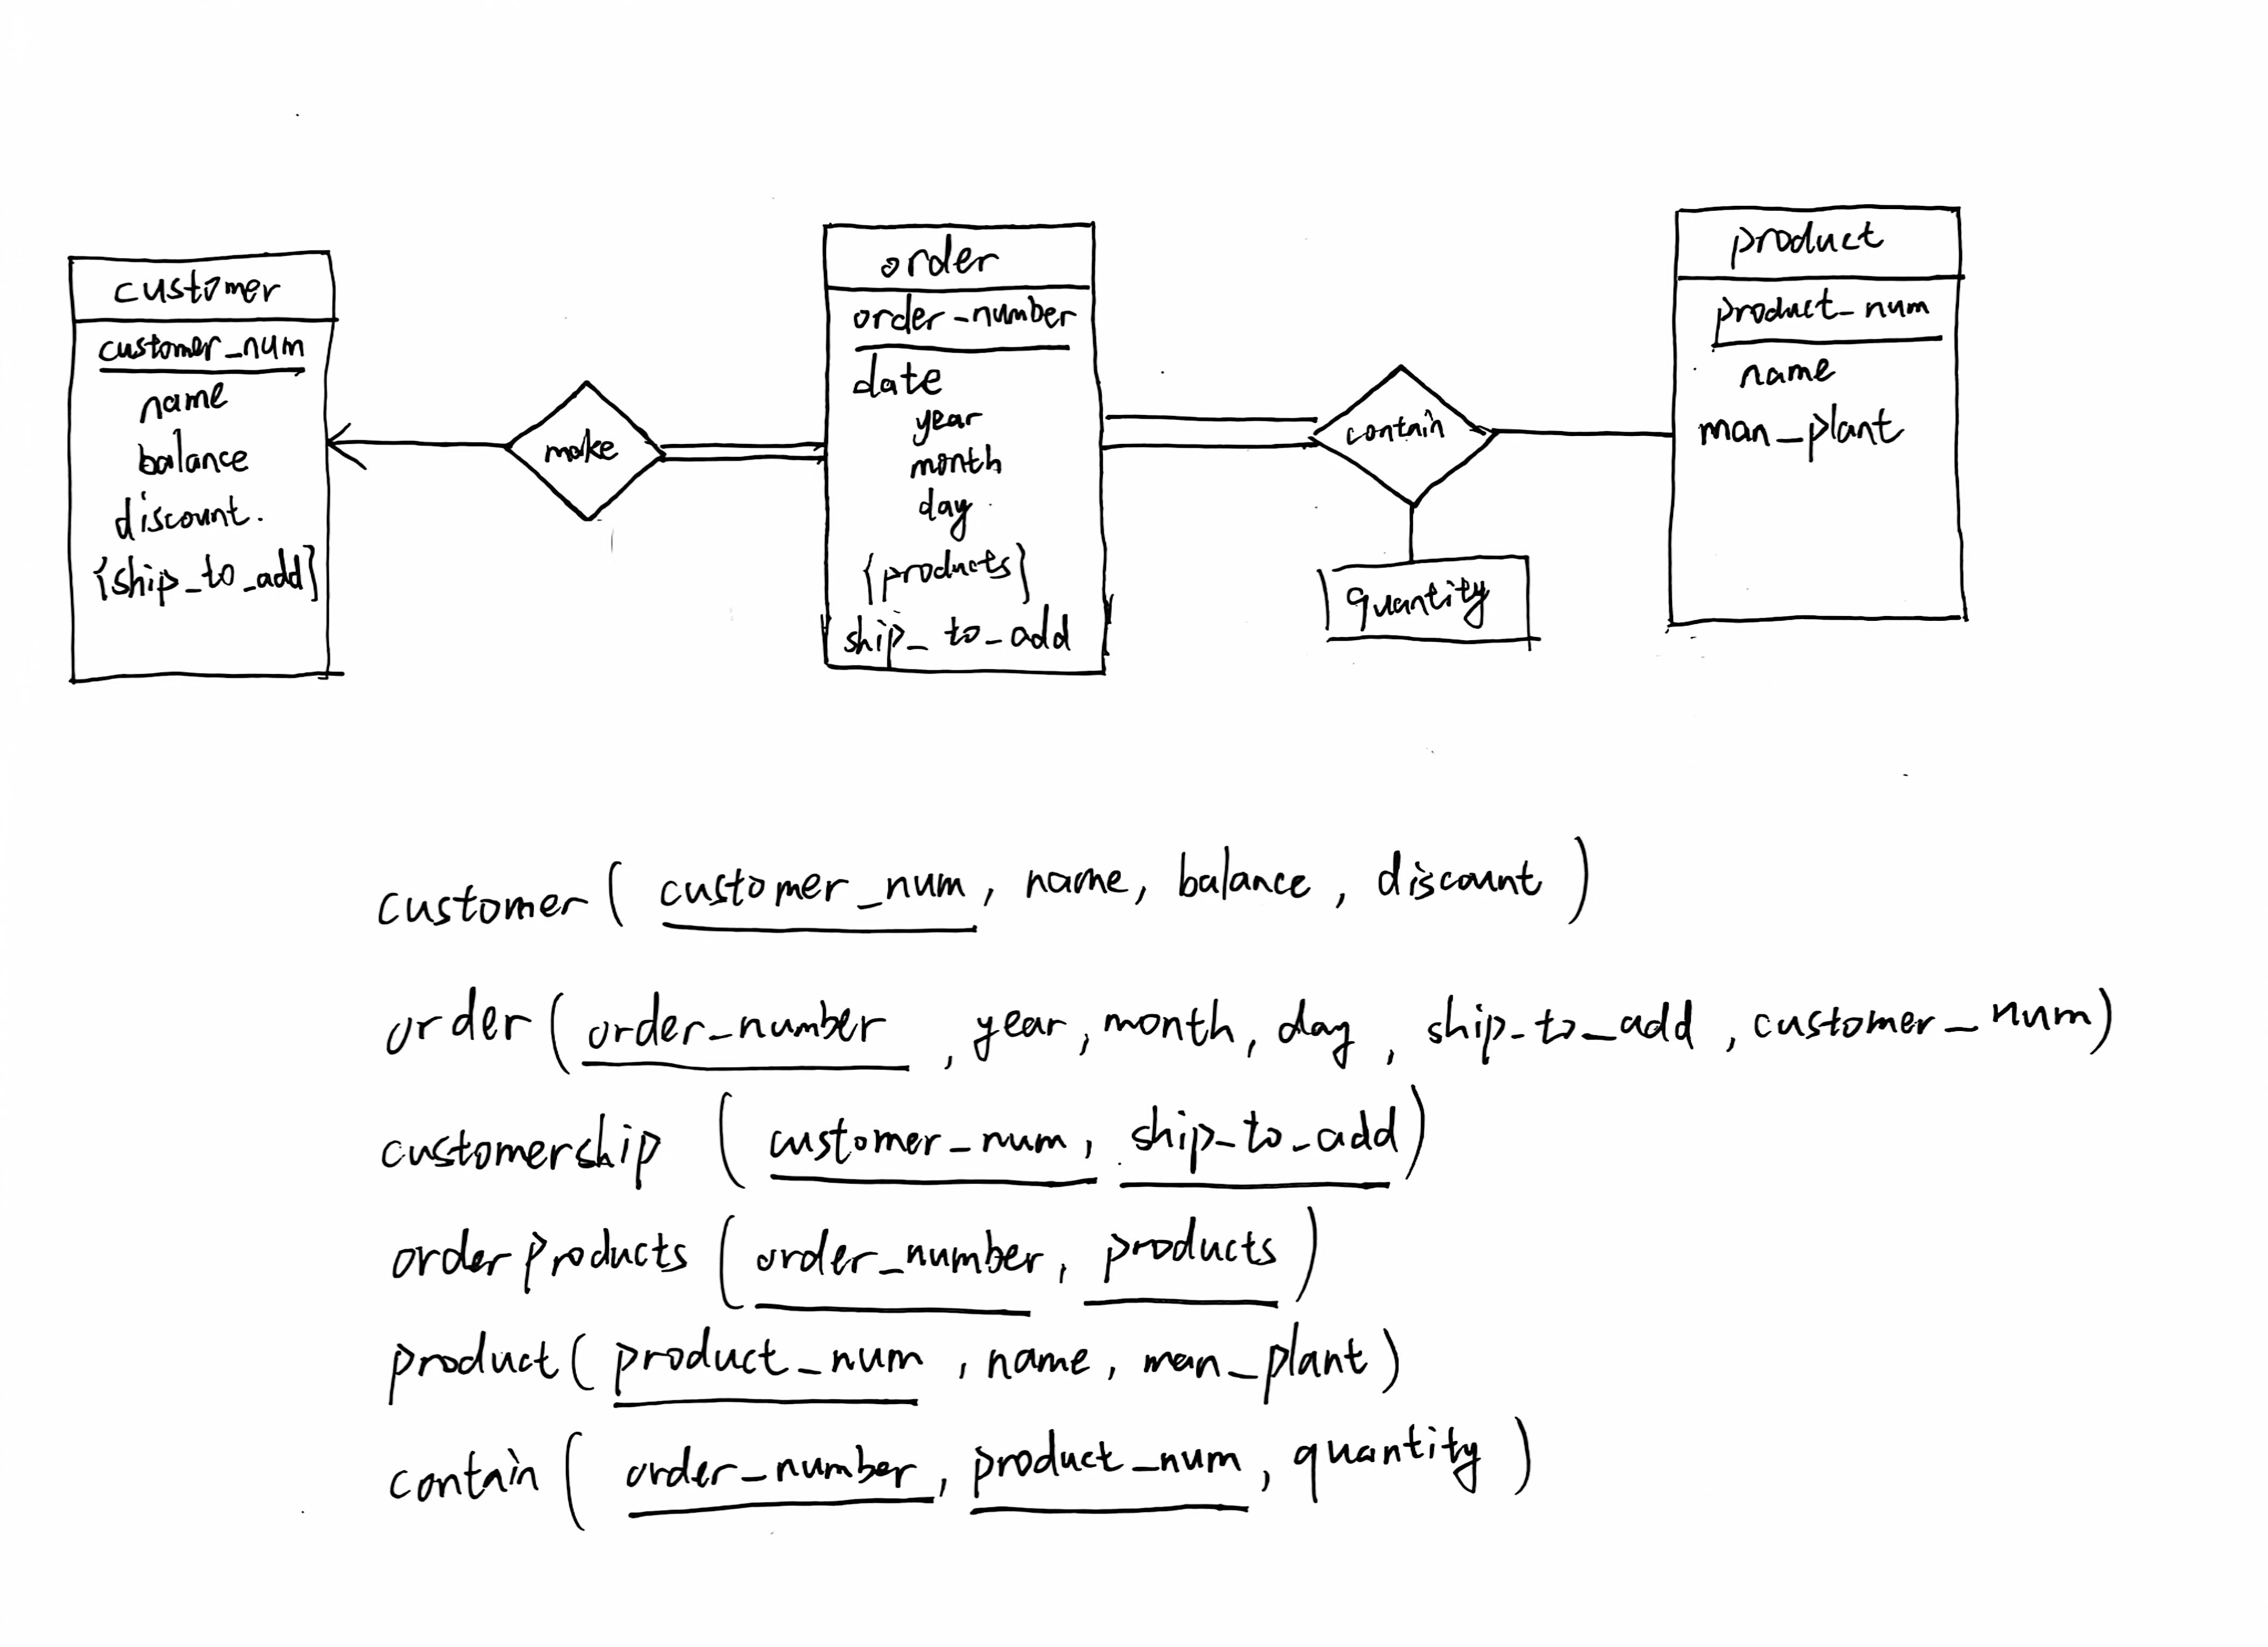 customer
customer_num
name
balance
discount.
{ship_to_add}
make
order
order_number
date
year
month
day
{products}
ship_to_add
contain
quantity
product
product_num
name
man_plant
customer ( customer_num, name, balance, discount )
order ( order_number, year, month, day, ship_to_add, customer_num)
customership ( customer_num, ship_to_add)
orderproducts ( order_number, products )
product ( product_num, name, man_plant)
contain ( order_number, product_num, quantity )